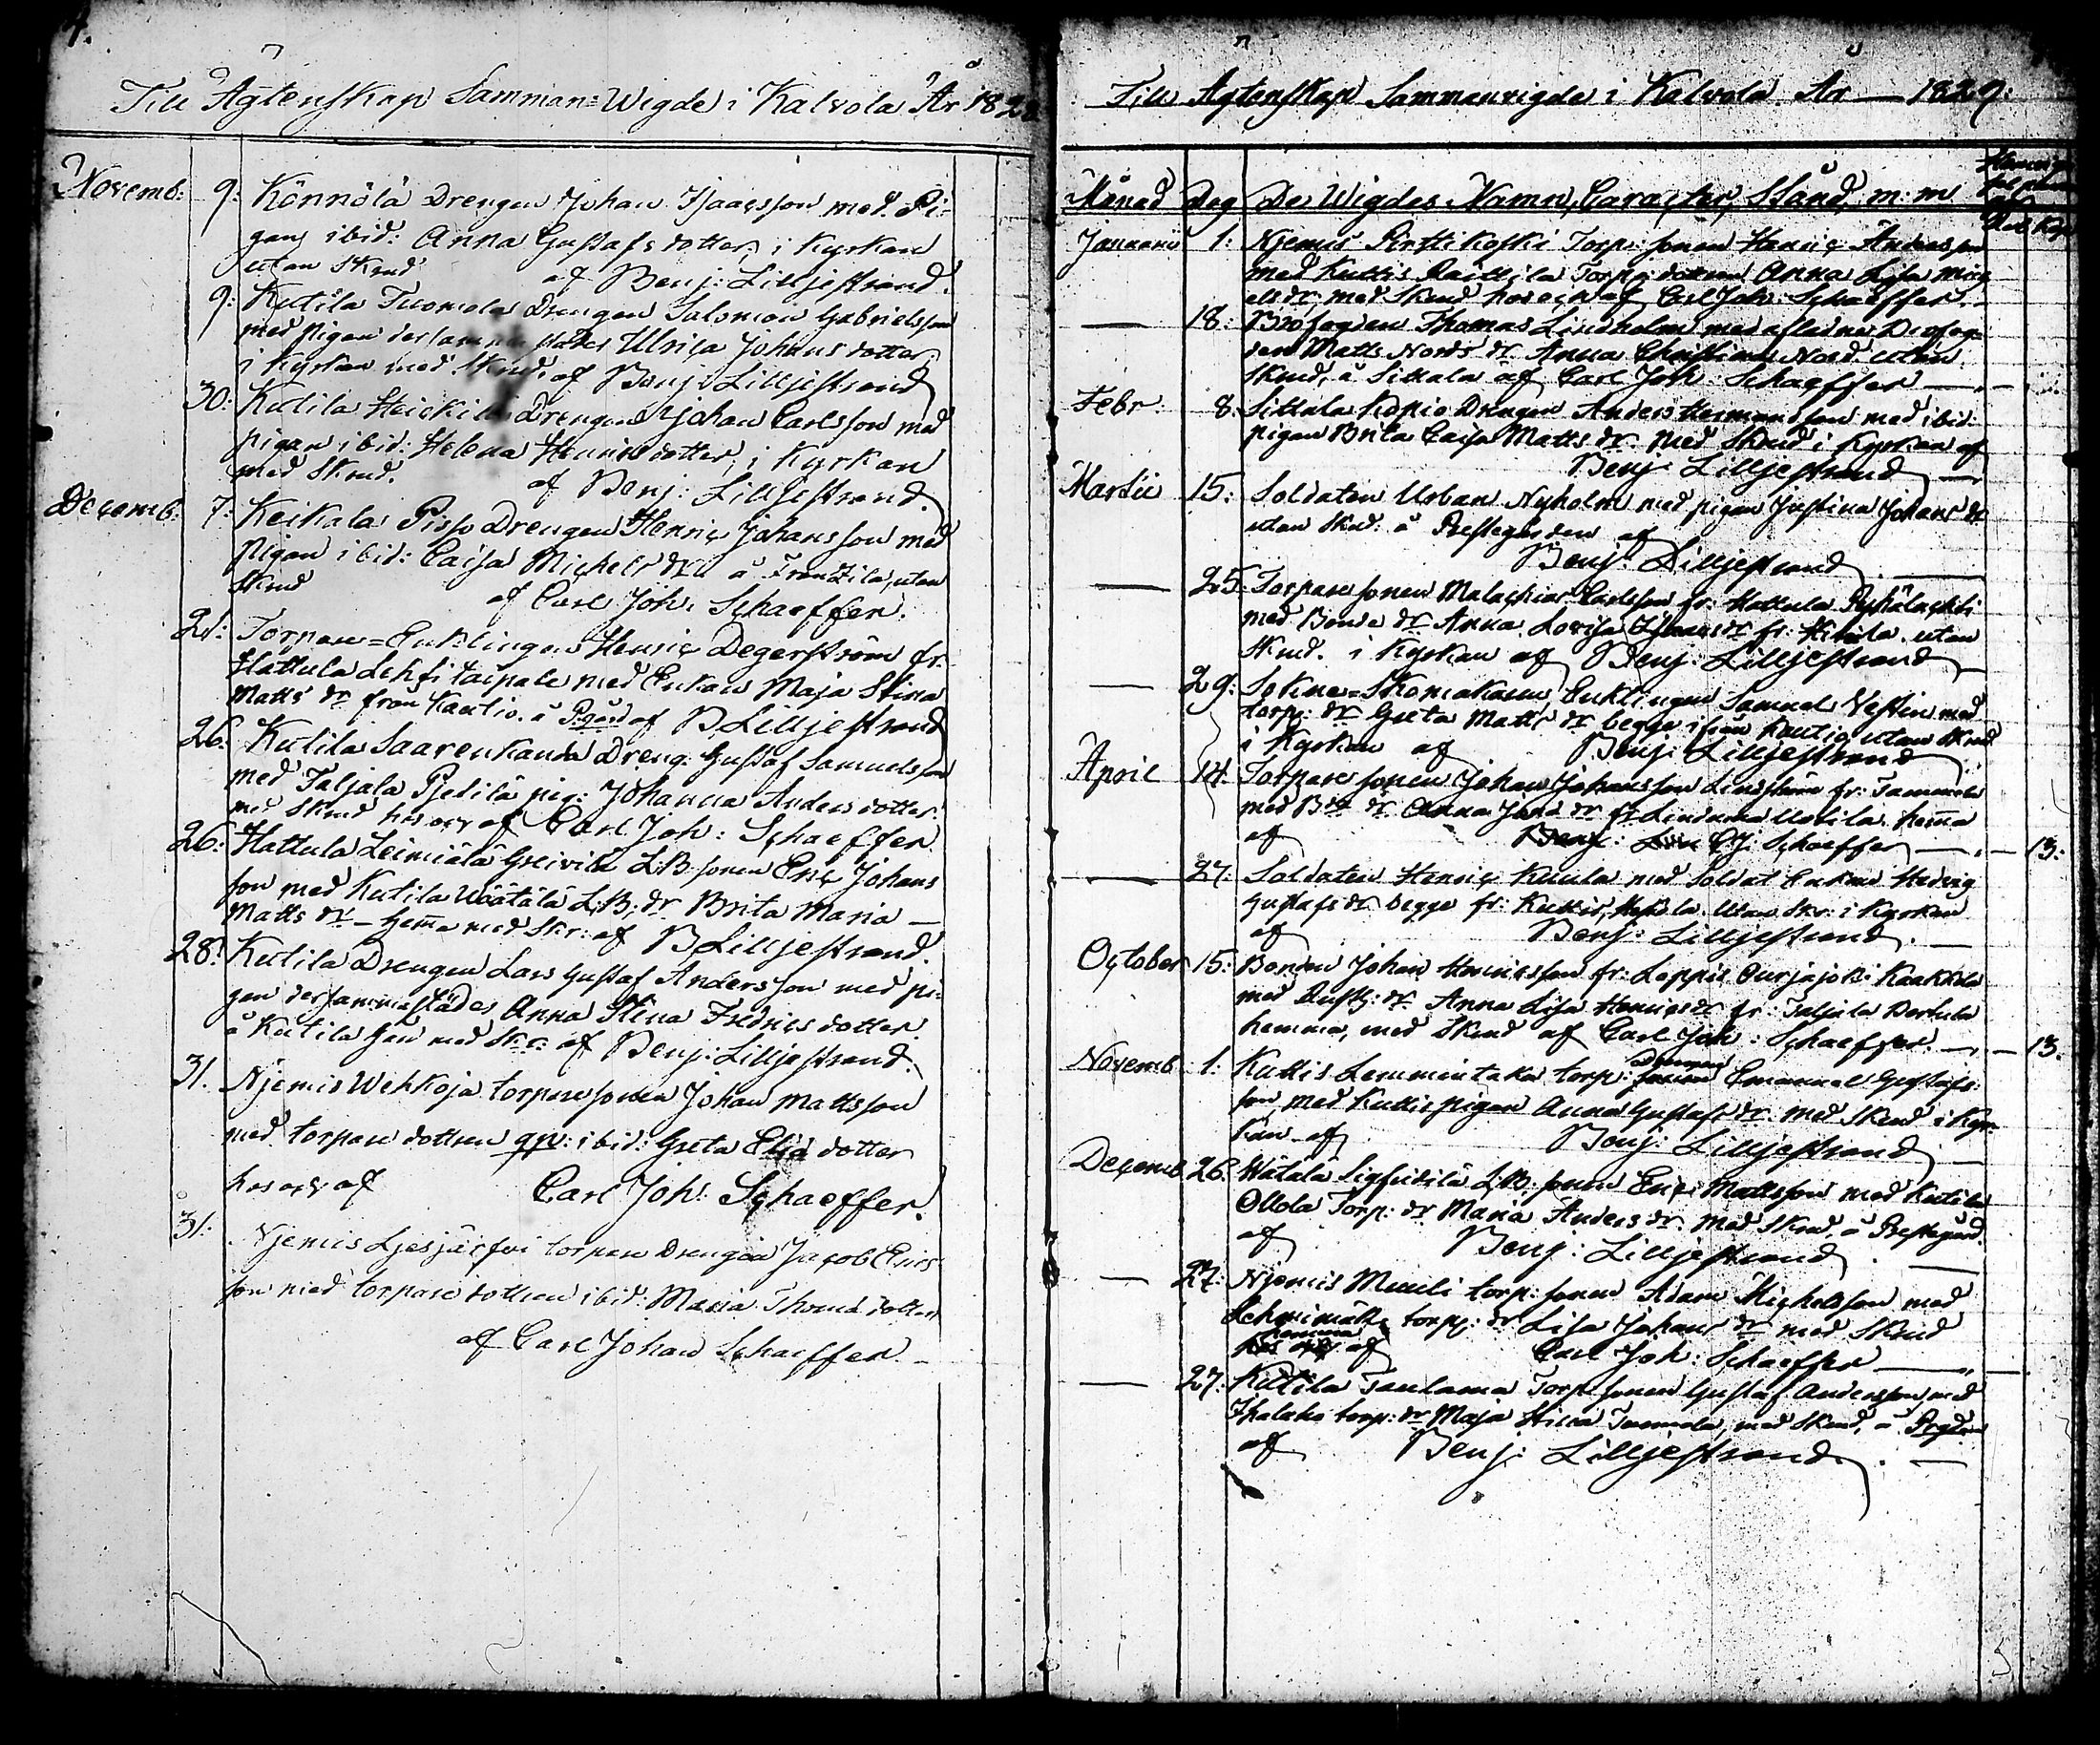 Till Ägtenskap Samman=Wigde i Kalvola År 1828
Novemb: 9: Könnölä Drengen Johan Isaacsson med Pi-
gan ibid: Anna Gustafs dotter, i Kyrkan
utan Skrud af Benj: Lilljestrand.
9: Kutila Tuomola Drengen Salomon Gabrielsson
med pigan dersammastädes Ulrica Johans dotter,
i Kyrkan med Skrud, af Benj: Lilljestrand
30: Kutila Heickilä Drengen Johan Carlsson med
pigan ibid: Helena Henrics dotter, i Kyrkan
med Skrud. af Benj: Lilljestrand.
Decemb: 7: Keikala Pisso Drengen Henric Johansson med
pigan ibid: Caisa Michels dr å Frantzila, utan
Skrud af Carl Joh: Schaeffer.
21: Torpare=Enklingen Henric Degerström fr.
Hattula Lehsitaipale med Enkan Maja Stina
Matts dr från Kautio. å Pgård af B Lilljestrand
26: Kutila Saarenkanda Dreng Gustaf Samuelsson
med Taljala Pjetilä pig: Johanna Anders dotter
med Skrud hos oss af Carl Joh: Schaeffer
26: Hattula Leimiälä Greivilä L.B. sonen Eric Johans
son med Kutila Uöätälä L:B: dr Brita Maria —
Matts dr — hema med Skr: af B Lilljestrand.
28: Kutila Drengen Lars Gustaf Andersson med pi-
gan dersammastädes Anna Stina Fredrics dotter
å Kutila med Skr: af Benj: Lilljestrand.
31. Njemis Wehkoja torparesonen Johan Mattsson
med torpare dottren ibid: Greta Eliä dotter
hos oss af Carl Joh: Schaeffer.
31: Njemis Ljesjärfvi torpare Drengen Jacob Erics
son med torpare dottren ibid: Maria Thomæ dotter
af Carl Johan Schaeffer —
Till Agtenskap Sammanvigde i Kalvola År — 1829:
Månad Dag De Wigdes Namn, Caracter, Stånd, m: m
Januarii 1: Njemis Pirttikoski Torp: sonen Henric Andersson
med Kuttis Torp: dottren Anna Lisa Mich
els dr, med Skrud hos oss af Carl Joh: Schaeffer. —
— 18: Brofogden Thomas Lindholm med aflidne
den Matts Nords dr Anna Christina Nord utan
Skrud, å Sittala af Carl Joh: Schaeffer —
Febr: 8 Sittala Kopio Drengen Anders Hermansson med ibid:
pigan Brita Caisa Matts dr. med Skrud i Kyrkan af
Benj: Lilljestrand —
Martii 15: Soldaten Urban Nyholm med pigan Justina Johans dr
utan Skrud: å Prestegården af
Benj: Lilljestrand. —
— 25: Torpare sonen Malachias Carlsson fr: Hattula
med Bonde dr Anna Lovisa dr fr: utan
Skrud. i Kyrkan af Benj: Lilljestrand
— 29: Sokne=Skomakaren Enklingen Samuel Vestin med
torp: dr Greta Matts dr begge ifrån Kautio utan Skrud
i Kyrkan af Benj: Lilljestrand
April 14. Torpare sonen Johan Johansson Lindström fr: Tammela
med dr Anna dr fr Lindema Uotila hema
af Benj: C J: Schaeffer — 13:
— 27: Soldaten Henric Kuula med Soldat Enkan Hedvig
Gustafs dr begge fr: Kuttis, utan Skr: i Kyrkan
af Benj: Lilljestrand. —
October 15: Bonden Johan Henricsson fr: Loppis Ourjajoki Kaakkola
med Rusth: dr Anna Lisa Henrics dr fr: Taljala Dertula
hemma, med Skrud af Carl Joh: Schaeffer. — 13.
Novemb 1: Kuttis Lemmintaka torp: Drengen Emanuel Gustafs
son, med Kuttis pigan Anna Gustafs dr med Skrud i Kyr-
kan af Benj: Lilljestrand —
Decemb. 26: Wätälä Sigfridilä L.B: sonen Eric Mattsson med Kutila
Ollola Torp: dr Maria Anders dr. med Skrud, å Prestegård.
af Benj: Lilljestrand. —
— 27: Njemis Muuli torp: sonen Adam Michelsson med
torp: dr Lisa Johans dr med Skrud
hemma af Carl Joh: Schaeffer —
— 27: Kutila Taulama Torp sonen Gustaf Andersson med
torp: dr Maja Stina Tuomola, med Skrud, å Pgden
af Benj: Lilljestrand. —